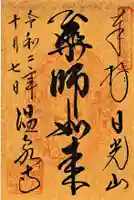 奉拝 日光山
薬師如来
令和二年 温泉寺
十月七日